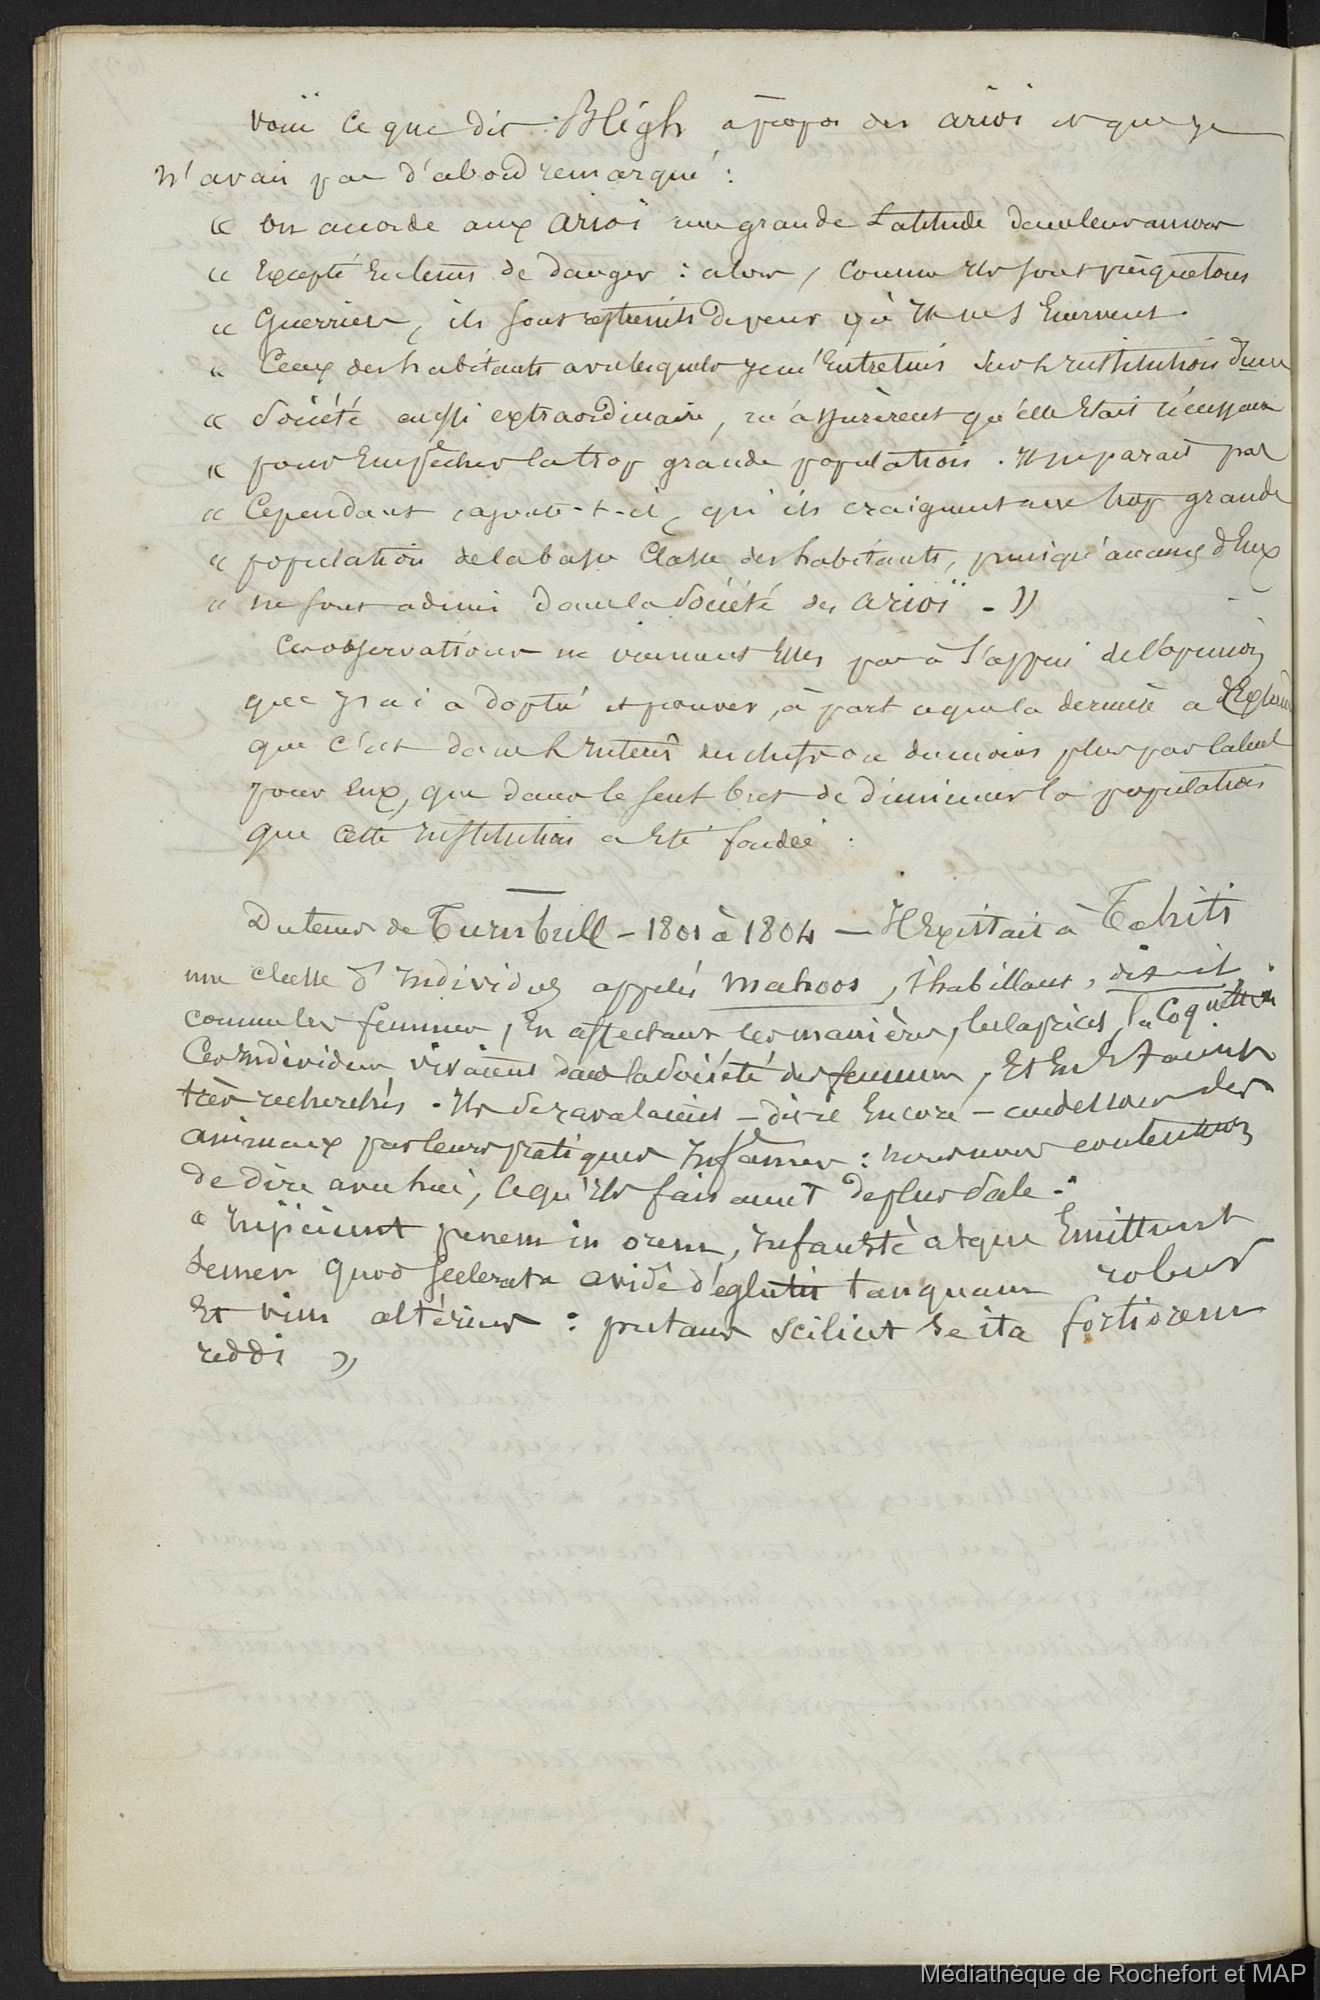 voici ce que dit Bligh à propos des arioï et que je
n'avais pas d'abord remarqué :
« on accorde aux arioï une grande Latitude dans leurs amours
« Excepté En tems de danger : alors, comme ils sont presque tous
« Guerriers, ils sont restreints de peur qu'ils ne s'Enervent.
« Ceux des habitants avec lesquels je m'Entretins sur l'institution d'une
« société aussi extraordinaire, m'assurèrent qu'elle était nécessaire
« pour Empêcher la trop grande population. Il ne parait pas
« Cependant, ajoute-t-il, qu'ils craignent une trop grande
« population de la basse Classe des habitants, puisqu'aucuns d'Eux
« ne sont admis dans la société des arioï - »
Ces observations ne viennent Elles pas à l'appui de l'opinion
que j'ai adoptée et prouver, à part ce que la dernière a
que c'est dans l'intérêt des chefs ou du moins plus par
pour Eux, que dans le seul but de diminuer la population
que cette institution a été fondée.
Du tems de Turnbull - 1801 à 1804 — Il Existait à Tahiti
une classe d'individus appelés mahoos, s'habillant, dit-il,
comme les femmes, En affectant les manières, les caprices, la coquetterie
Ces individus vivaient dans la société des femmes, Et En Etaient
très recherchés. Ils se ravalaient - dit-il Encore - au dessous des
animaux par leurs pratiques infâmes : nous nous contentons
de dire avec lui, ce qu'ils faisaient de plus sale.
« injiciunt penem in orem, infaustè atque Emittunt
semen quod scelerata avidè deglutit tanquam robur
Et vim alterius : putans scilicet se ita fortiorem
reddi »
Médiathèque de Rochefort et MAP